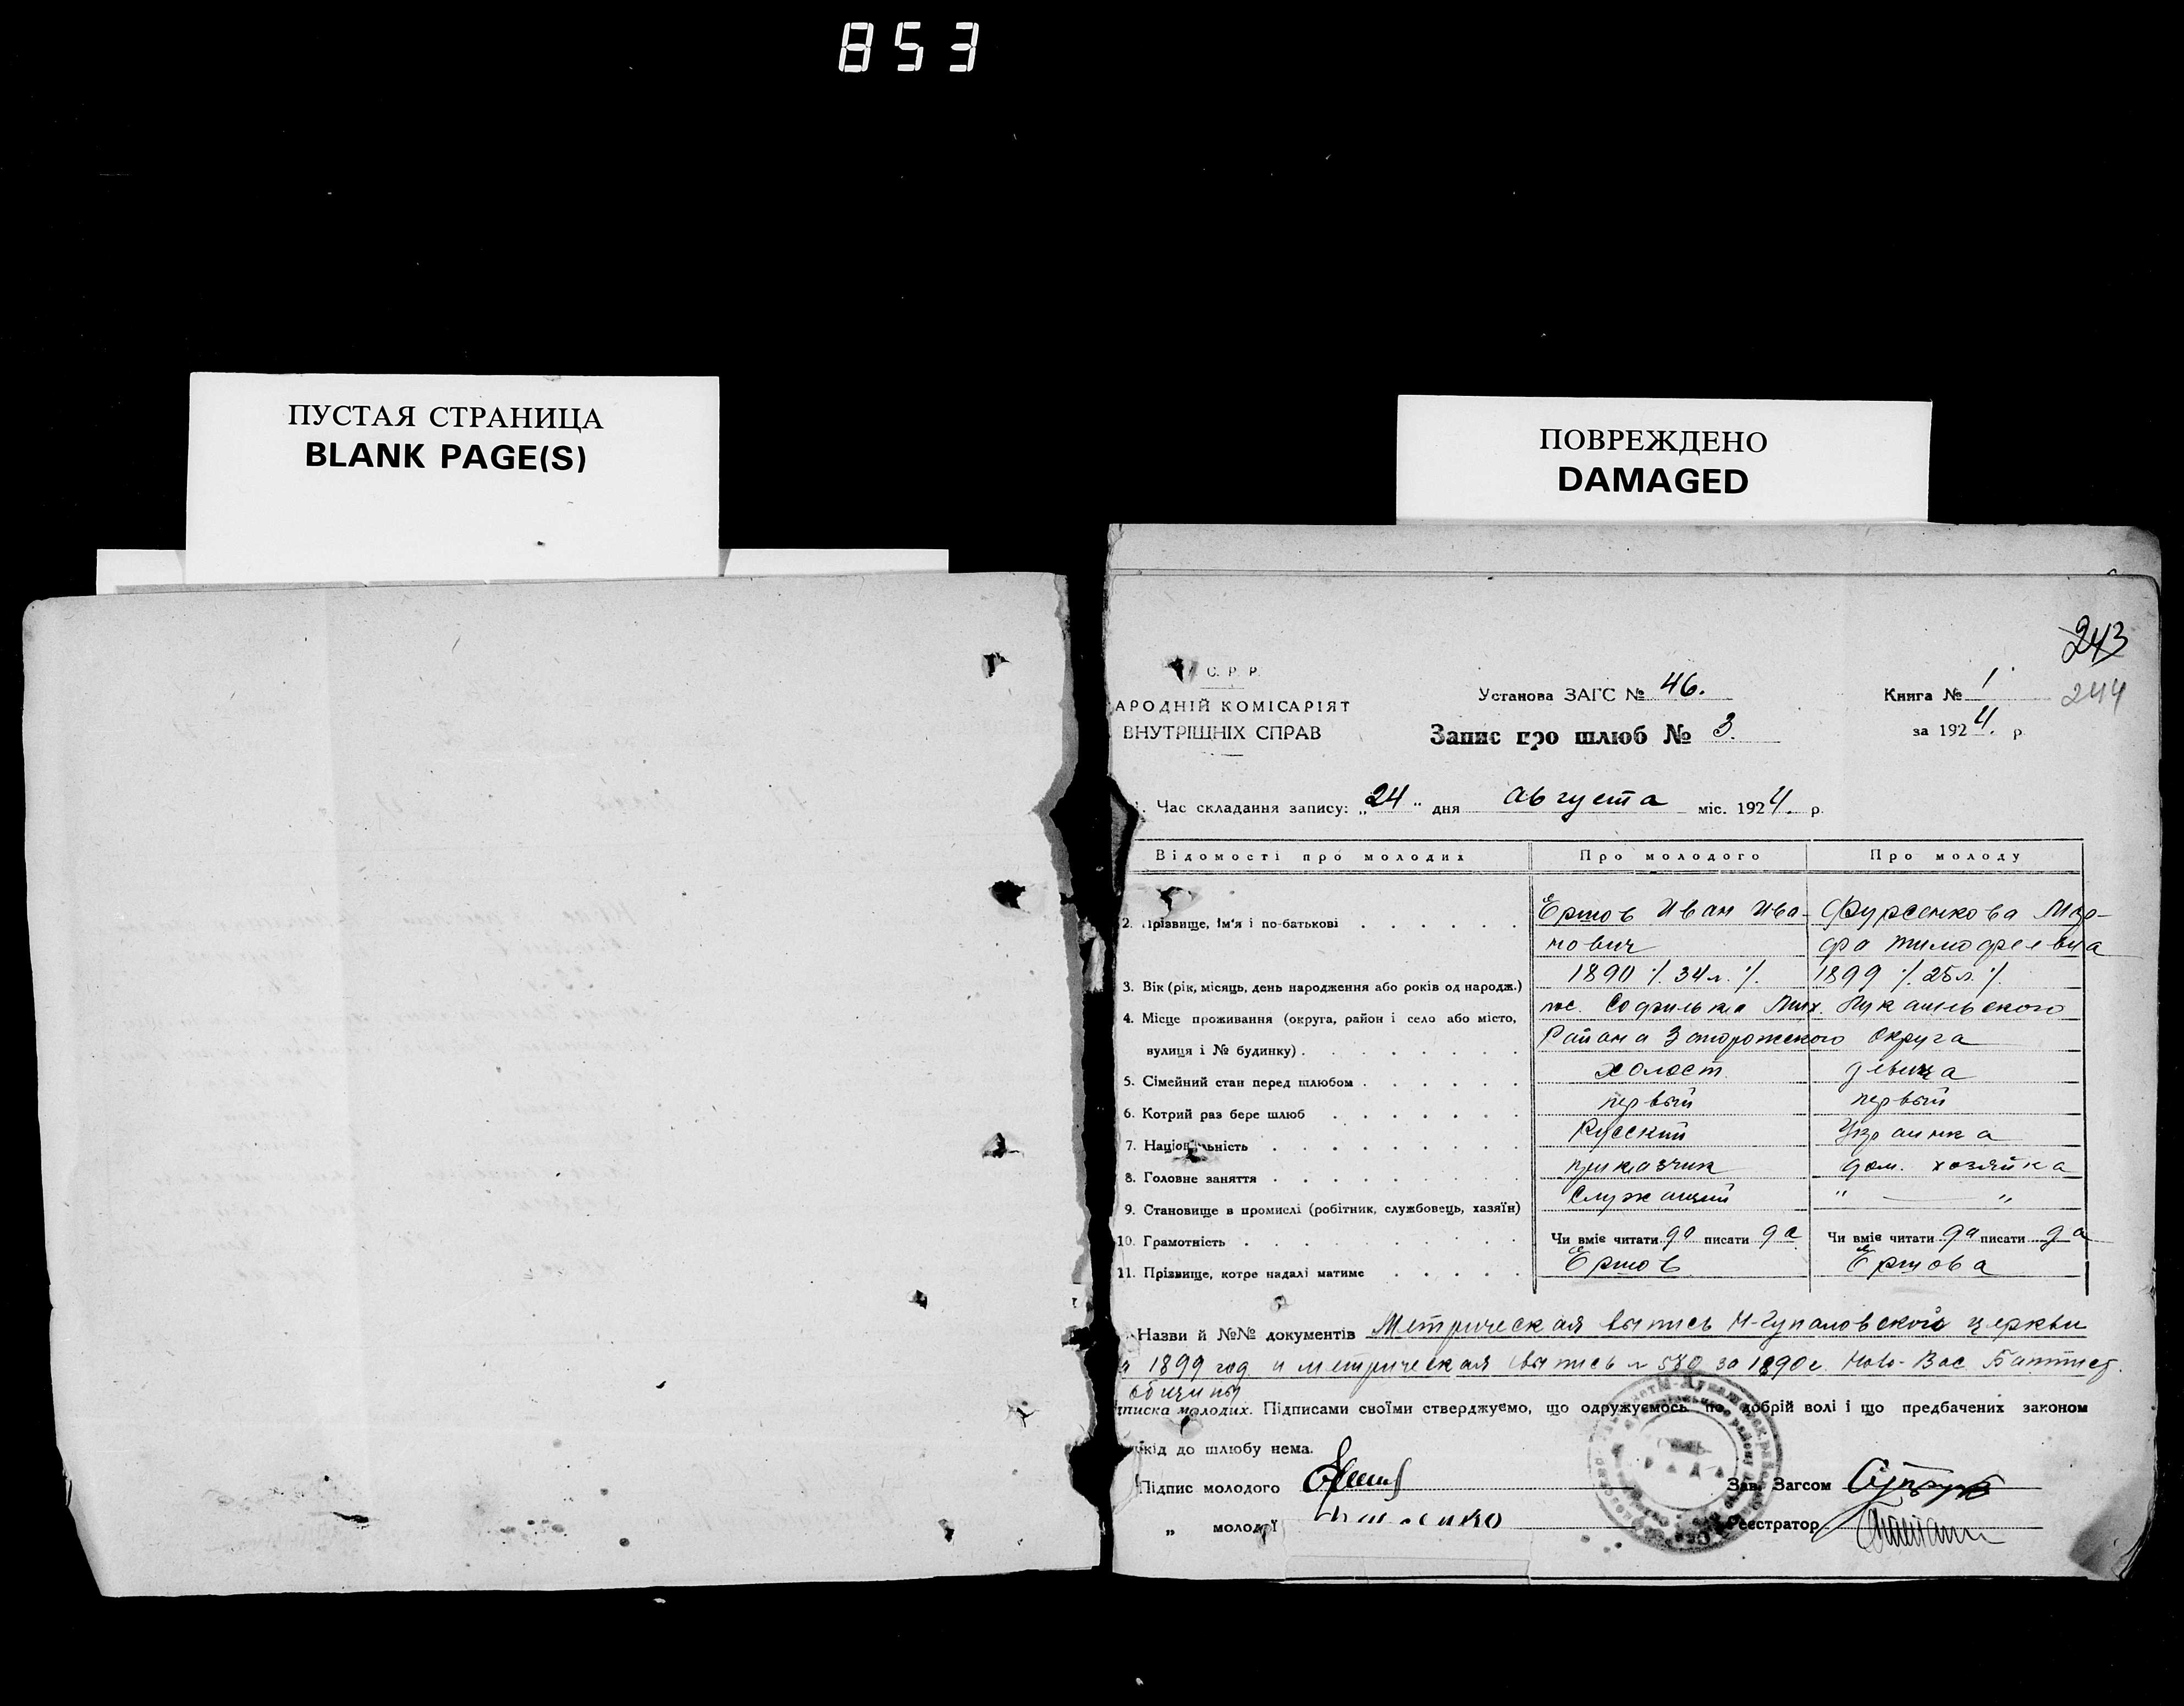 853
ПУСТАЯ СТРАНИЦА
BLANK PAGE(S)
ПОВРЕЖДЕНО
DAMAGED
243
244
С. Р. Р.
АРОДНІЙ КОМІСАРІЯТ
ВНУТРІШНІХ СПРАВ
Установа ЗАГС № 46.
Запис про шлюб № 3.
Книга № 1
за 1924. р.
Час складання запису: „24" дня Августа міс. 1924. р.
Відомості про молодих Про молодого Про молоду
2. Прізвище, Ім'я і по-батькові Ершов Иван Ива- Фурсенкова Мар-
нович фа Тимофеевна
3. Вік (рік, місяць, день народження або років од народж.) 1890 /. 34 л. /. 1899 /. 25 л. /.
4. Місце проживання (округа, район і село або місто, пос. Софиевка Мих. Лукашевского
вулиця і № будинку) Района Запорожского Округа
5. Сімейний стан перед шлюбом холост девица
6. Котрий раз бере шлюб первый первый
7. Національність Русский Украинка
8. Головне заняття приказчик дом. хозяйка
9. Становище в промислі (робітник, службовець, хазяїн) Служащий " — "
10. Грамотність Чи вміє читати да писати да Чи вміє читати да писати да
11. Прізвище, котре надалі матиме Ершов Ершова
Назви й №№ документів Метрическая выпись Н-Гупаловской церкви
а 1899 год и метрическая выпись № 580 за 1890 г. Ново-Вас. Баптист.
общины
писка молодих. Підписами своїми стверджуємо, що одружуємось по добрій волі і що предбачених законом
кід до шлюбу нема.
Підпис молодого Зав. Загсом
„ молодої Реєстратор